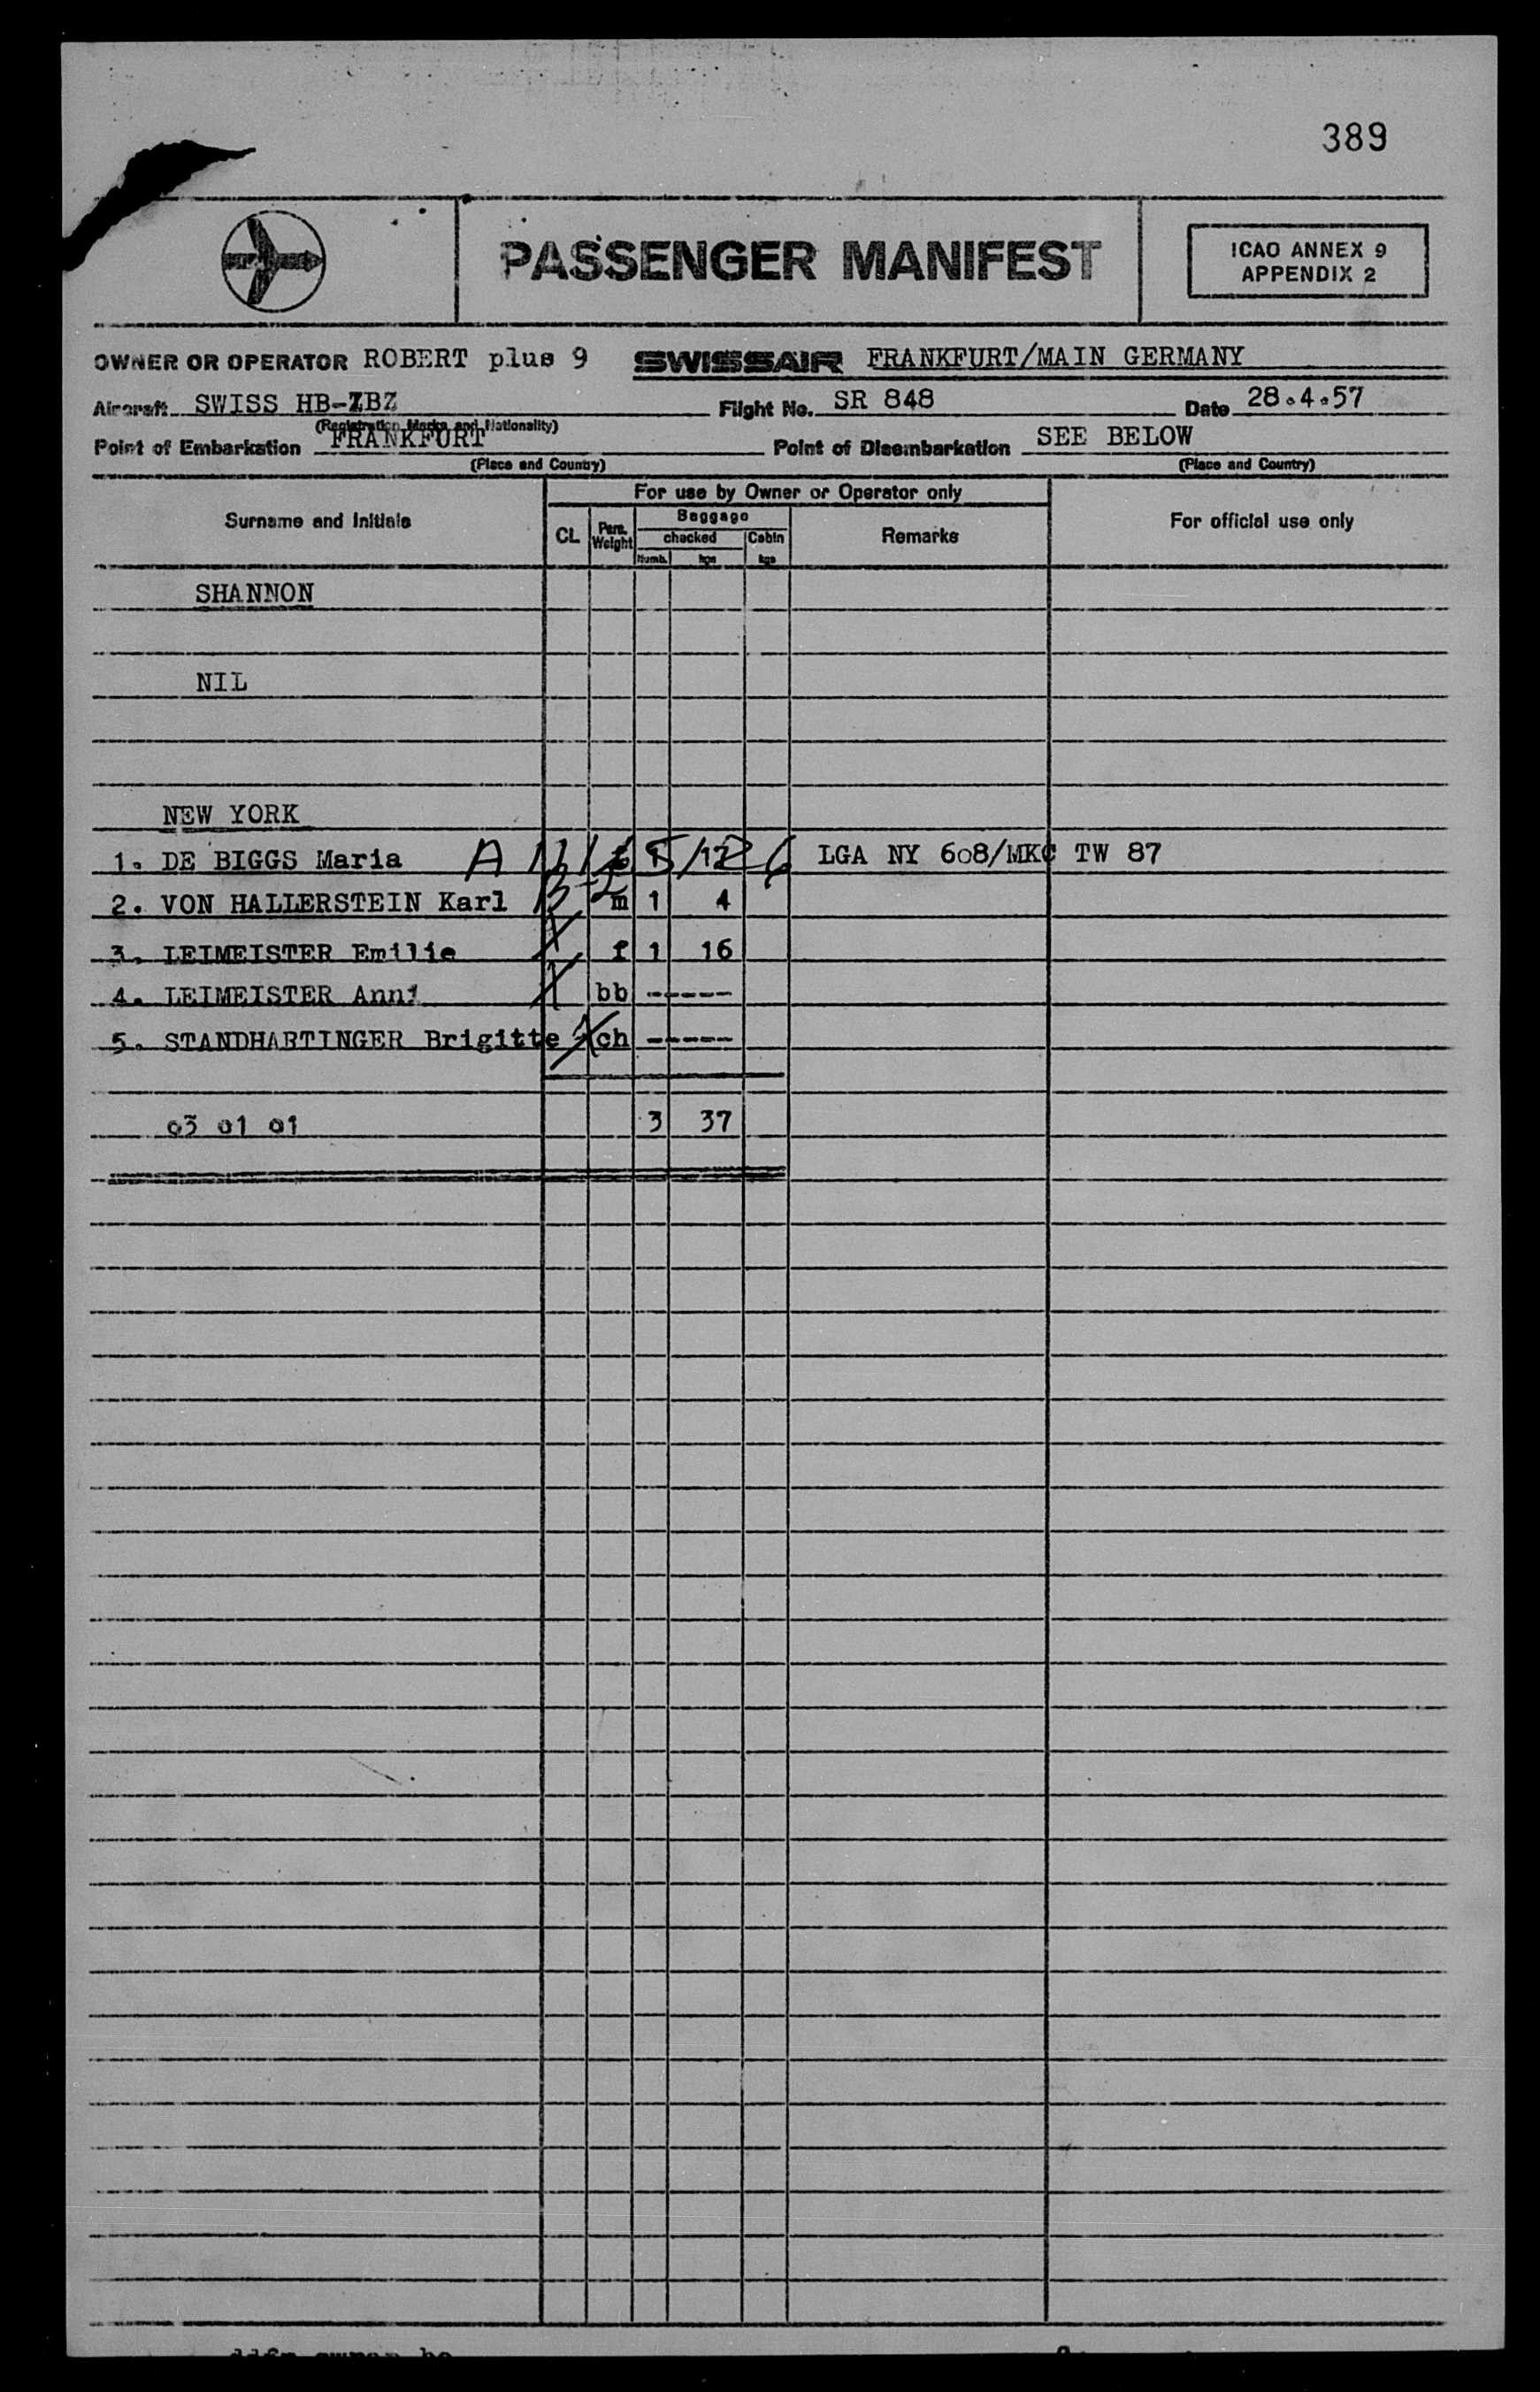 389
PASSENGER MANIFEST
ICAO ANNEX 9
APPENDIX 2
OWNER OR OPERATOR ROBERT plus 9 SWISSAIR FRANKFURT/MAIN GERMANY
Aircraft SWISS HB-IBZ Flight No. SR 848 Date 28.4.57
(Registration Marks and Nationality)
Point of Embarkation FRANKFURT Point of Disembarkation SEE BELOW
(Place and Country) (Place and Country)
Surname and Initials
For use by Owner or Operator only
CL Pers. Weight
Baggage
checked Cabin
Numb. kgs kgs
Remarks
For official use only
SHANNON
NIL
NEW YORK
1. DE BIGGS Maria A 1 17 LGA NY 608/MKC TW 87
2. VON HALLERSTEIN Karl m 1 4
3. LEIMEISTER Emilie f 1 16
4. LEIMEISTER Anni bb -----
5. STANDHARTINGER Brigitte ch -----
03 01 01 3 37